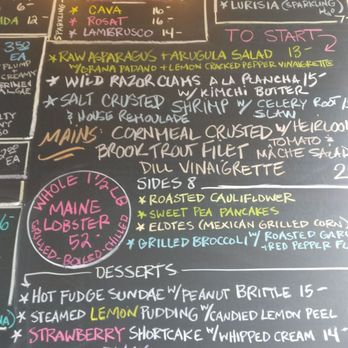 * CAVA 16-
* ROSAT 16-
* LAMBRUSCO 14-
SPARKLING
* LURISIA (SPARKLING
H₂O
TO START
* RAW ASPARAGUS + ARUGULA SALAD 13-
W/ GRANA PADANO + LEMON CRACKED PEPPER VINAIGRETTE
* WILD RAZOR CLAMS A LA PLANCHA 15-
W/ KIMCHI BUTTER
* SALT CRUSTED SHRIMP W/ CELERY ROOT
& HOUSE REMOULADE SLAW
MAINS: CORNMEAL CRUSTED W/ HEIRLOOM
BROOK TROUT FILET TOMATO +
MÂCHE SALAD
DILL VINAIGRETTE 2
SIDES 8
* ROASTED CAULIFLOWER
* SWEET PEA PANCAKES
* ELOTES (MEXICAN GRILLED CORN)
* GRILLED BROCCOLI W/ ROASTED GAR
+ RED PEPPER FL
WHOLE 1 1/2 LB
MAINE
LOBSTER
52-
GRILLED - BOILED - CHILLED
DESSERTS
* HOT FUDGE SUNDAE W/ PEANUT BRITTLE 15-
* STEAMED LEMON PUDDING W/ CANDIED LEMON PEEL
* STRAWBERRY SHORTCAKE W/ WHIPPED CREAM 14-
352
EA
PLUMP
CREAMY